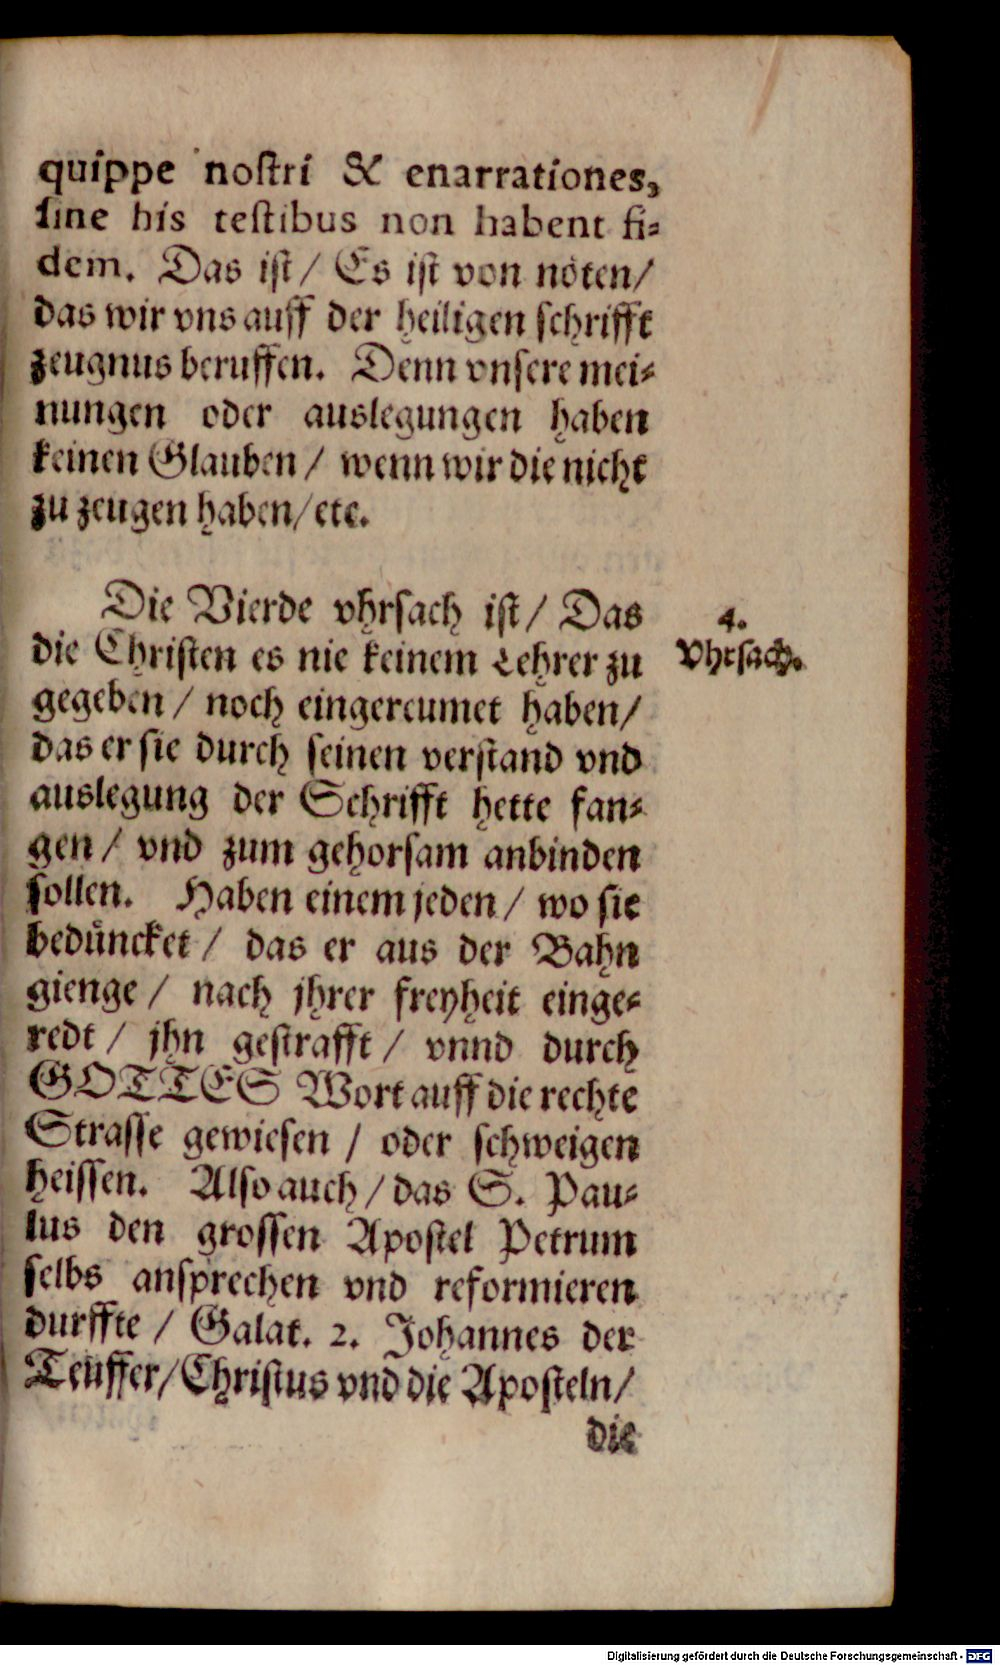 quippe nostri & enarrationes,
sine his testibus non habent fi-
dem. Das ist / Es ist von nöten /
das wir vns auff der heiligen schrifft
zeugnus beruffen. Denn vnsere mei-
nungen oder auslegungen haben
keinen Glauben / wenn wir die nicht
zu zeugen haben / etc.
Die Vierde vhrsach ist / Das
die Christen es nie keinem Lehrer zu
gegeben / noch eingereumet haben /
das er sie durch seinen verstand vnd
auslegung der Schrifft hette fan-
gen / vnd zum gehorsam anbinden
sollen. Haben einem jeden / wo sie
bedüncket / das er aus der Bahn
gienge / nach jhrer freyheit einge-
redt / jhn gestrafft / vnnd durch
GOTTES Wort auff die rechte
Strasse gewiesen / oder schweigen
heissen. Also auch / das S. Pau-
lus den grossen Apostel Petrum
selbs ansprechen vnd reformieren
durffte / Galat. 2. Johannes der
Teuffer / Christus vnd die Aposteln /
die
4.
Vhrsach.
Digitalisierung gefördert durch die Deutsche Forschungsgemeinschaft - DFG